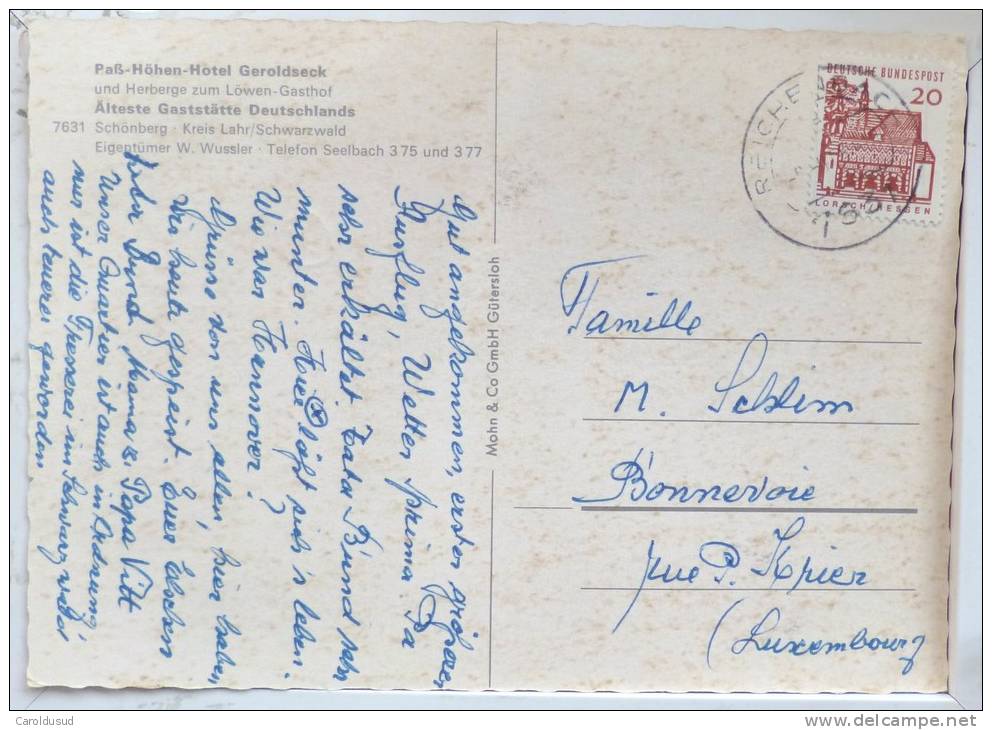 Paß-Höhen-Hotel Geroldseck
und Herberge zum Löwen-Gasthof
Älteste Gaststätte Deutschlands
7631 Schönberg · Kreis Lahr/Schwarzwald
Eigentümer W. Wussler · Telefon Seelbach 3 75 und 3 77
Gut angekommen, erster größerer
Ausflug, Wetter prima. Pa
sehr erkältet. Tata Bund sehr
munter. Hier läßt sich's leben.
Wie war Hannover?
Grüsse von uns allen, hier haben
wir heute gespeist. Euer Elschen
Bund Mama u. Papa Vitt
Unser Quartier ist auch in Ordnung,
nur ist die im Schwarzwald
auch teurer geworden
Mohn & Co GmbH Gütersloh
DEUTSCHE BUNDESPOST
20
LORSCH HESSEN
REICHE
Famille
M. Schlim
Bonnevoie
rue P. Krier
(Luxembourg)
Caroldusud
www.delcampe.net